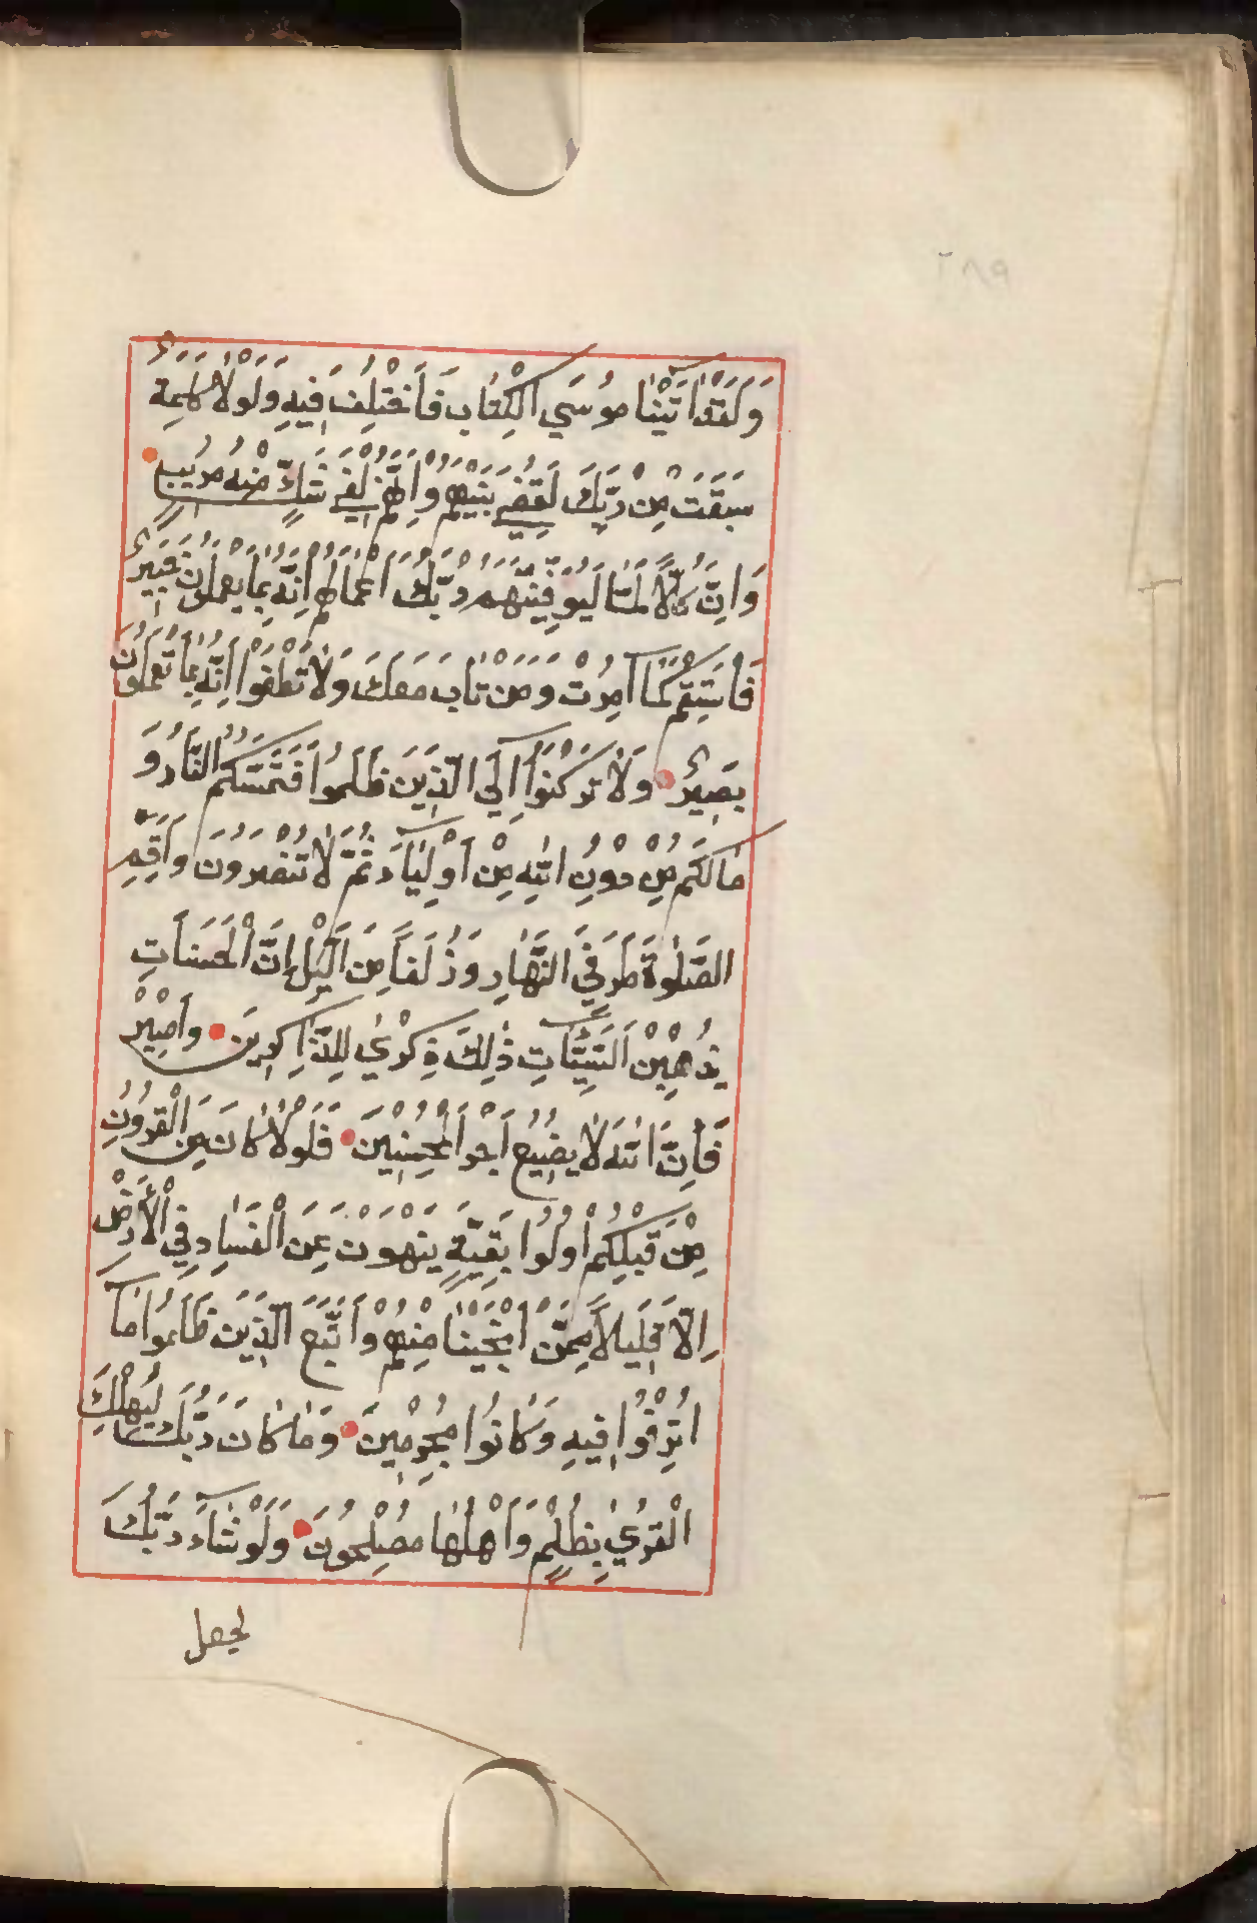 ٢٨٩
وَلَقَدْ اٰتَيْنَا مُوسَي الْكِتَابَ فَاخْتُلِفَ فِيهِ وَلَوْلَا كَلِمَةٌ
سَبَقَتْ مِنْ رَبِّكَ لَقُضِيَ بَيْنَهُمْ وَاِنَّهُمْ لَفِي شَكٍّ مِنْهُ مُرِيبٍ
وَاِنَّ كُلًّا لَمَّا لَيُوَفِّيَنَّهُمْ رَبُّكَ اَعْمَالَهُمْ اِنَّهُ بِمَا يَعْمَلُونَ خَبِيرٌ
فَاسْتَقِمْ كَمَا اُمِرْتَ وَمَنْ تَابَ مَعَكَ وَلَا تَطْغَوْا اِنَّهُ بِمَا تَعْمَلُونَ
بَصِيرٌ وَلَا تَرْكَنُوا اِلَي الَّذِينَ ظَلَمُوا فَتَمَسَّكُمُ النَّارُ وَ
مَا لَكُمْ مِنْ دُونِ اللّٰهِ مِنْ اَوْلِيَاءَ ثُمَّ لَا تُنْصَرُونَ وَاَقِمِ
الصَّلٰوةَ طَرَفَيِ النَّهَارِ وَزُلَفًا مِنَ الَّيْلِ اِنَّ الْحَسَنَاتِ
يُذْهِبْنَ السَّيِّئَاتِ ذٰلِكَ ذِكْرٰي لِلذَّاكِرِينَ وَاصْبِرْ
فَاِنَّ اللّٰهَ لَا يُضِيعُ اَجْرَ الْمُحْسِنِينَ فَلَوْلَا كَانَ مِنَ الْقُرُونِ
مِنْ قَبْلِكُمْ اُولُوا بَقِيَّةٍ يَنْهَوْنَ عَنِ الْفَسَادِ فِي الْاَرْضِ
اِلَّا قَلِيلًا مِمَّنْ اَنْجَيْنَا مِنْهُمْ وَاتَّبَعَ الَّذِينَ ظَلَمُوا مَا
اُتْرِفُوا فِيهِ وَكَانُوا مُجْرِمِينَ وَمَا كَانَ رَبُّكَ لِيُهْلِكَ
الْقُرٰي بِظُلْمٍ وَاَهْلُهَا مُصْلِحُونَ وَلَوْ شَاءَ رَبُّكَ
لجعل